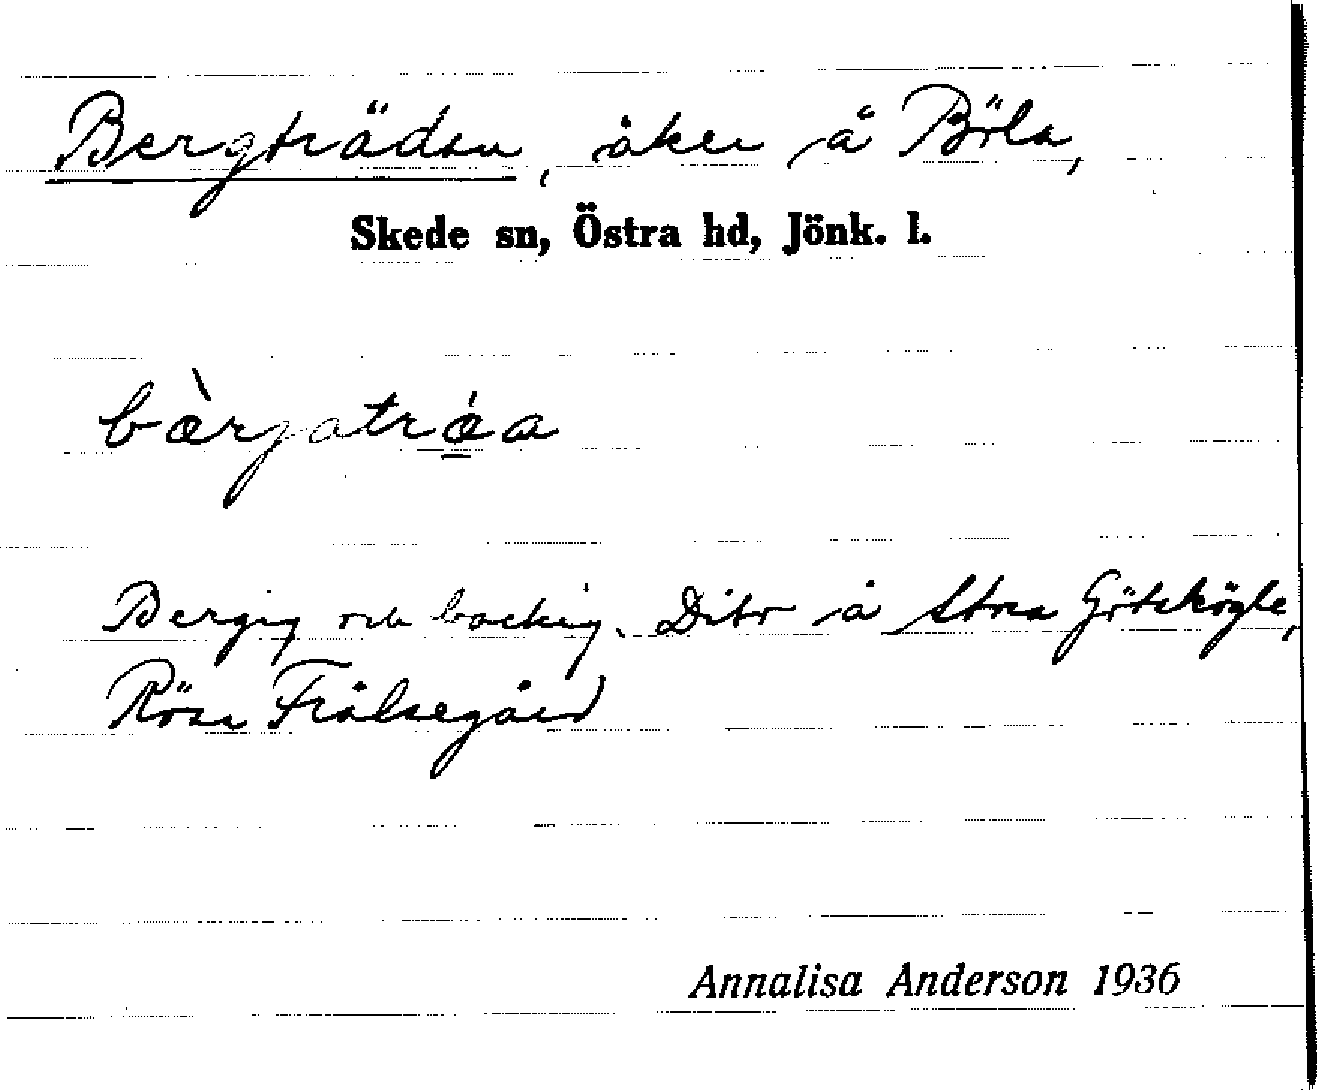 Bergträdan, åker å Böla,
Skede sn, Östra hd, Jönk. l.
bærjatræa
Bergig och backig. Dito å Stora Götskögle,
Rösa Frälsegård
Annalisa Anderson 1936